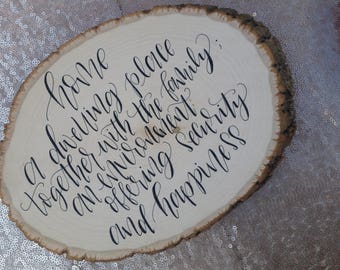 home
a dwelling place
together with the family;
an environment
offering security
and happiness